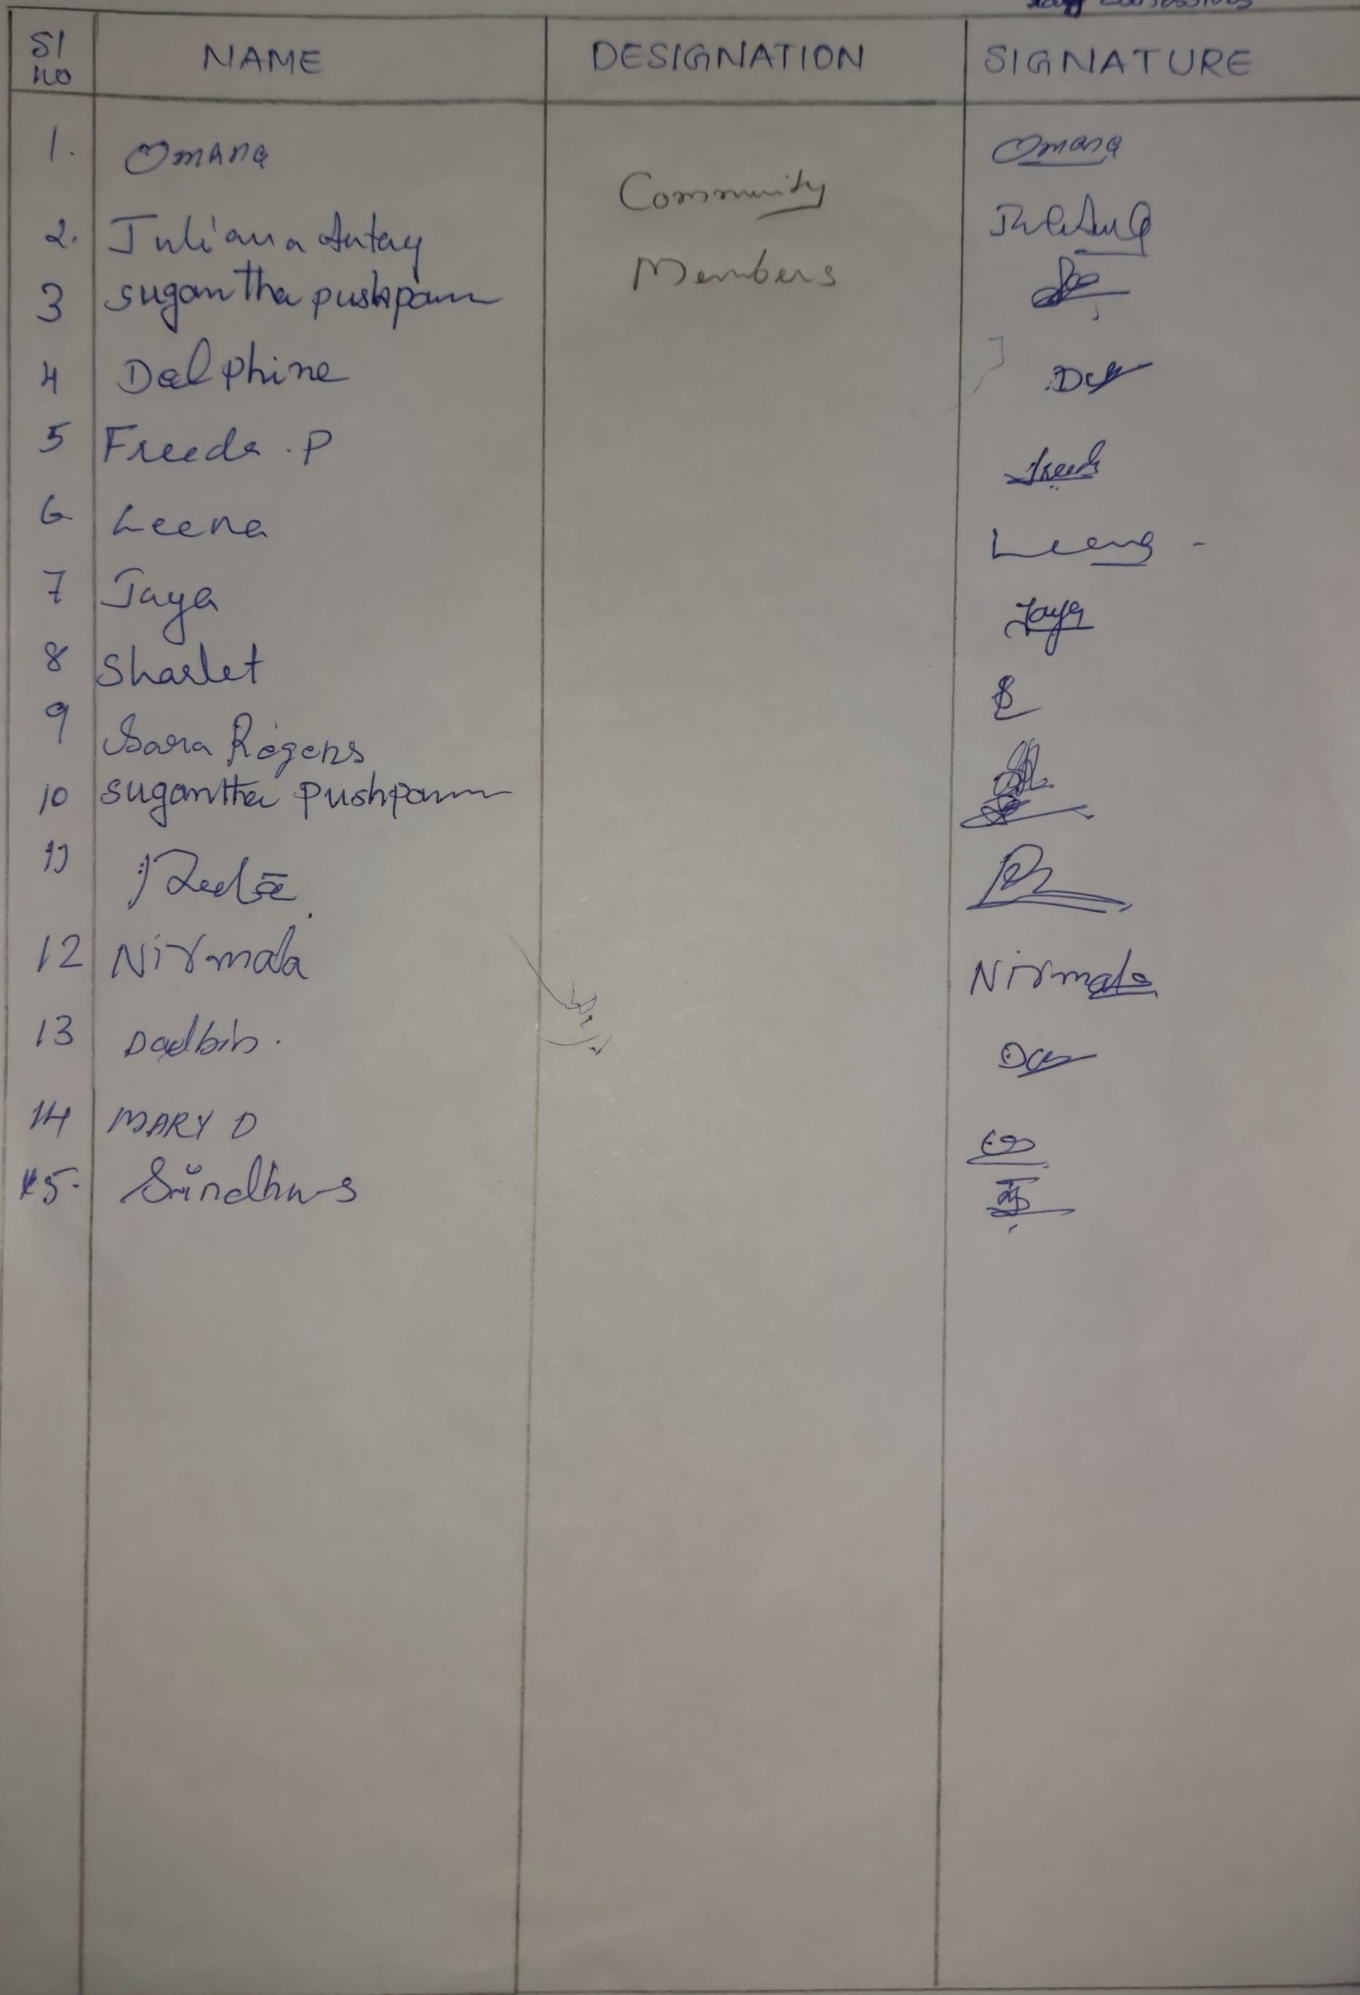 Sl no NAME DESIGNATION SIGNATURE
1. Omana Omana
Community
2. Juliana Antay
Members
3 Sugantha pushpam
4 Dalphine
5 Freeda . P Freeda
6 Leena Leena -
7 Jaya Jaya
8 Sharlet
9 Sara Rogens
10 Sugantha pushpam
11
12 Nirmala Nirmala
13
14 MARY D
15. Sindhu S